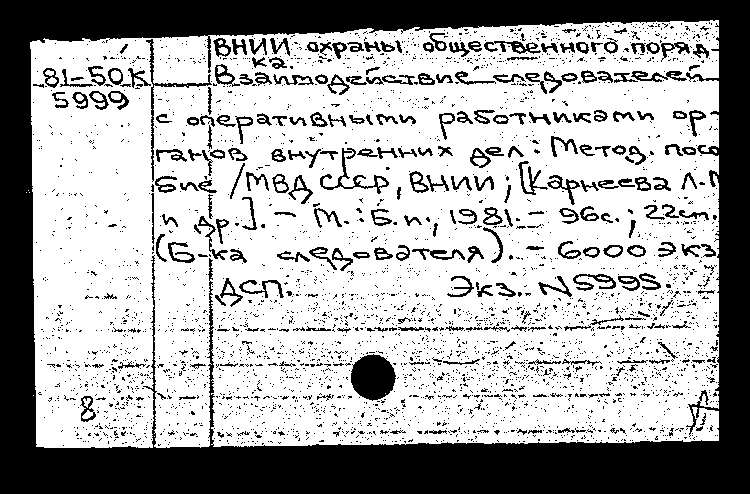 ВНИИ охраны общественного поряд-
ка.
81-50К Взаимодействие следователей
5999
с оперативными работниками ор-
ганов внутренних дел: Метод. посо
бие /МВД СССР, ВНИИ; [Карнеева Л.М
и др.]. – М.: Б.и., 1981. – 96с.; 22см.
(Б-ка следователя). – 6000 экз
ДСП. Экз. N5995.
8